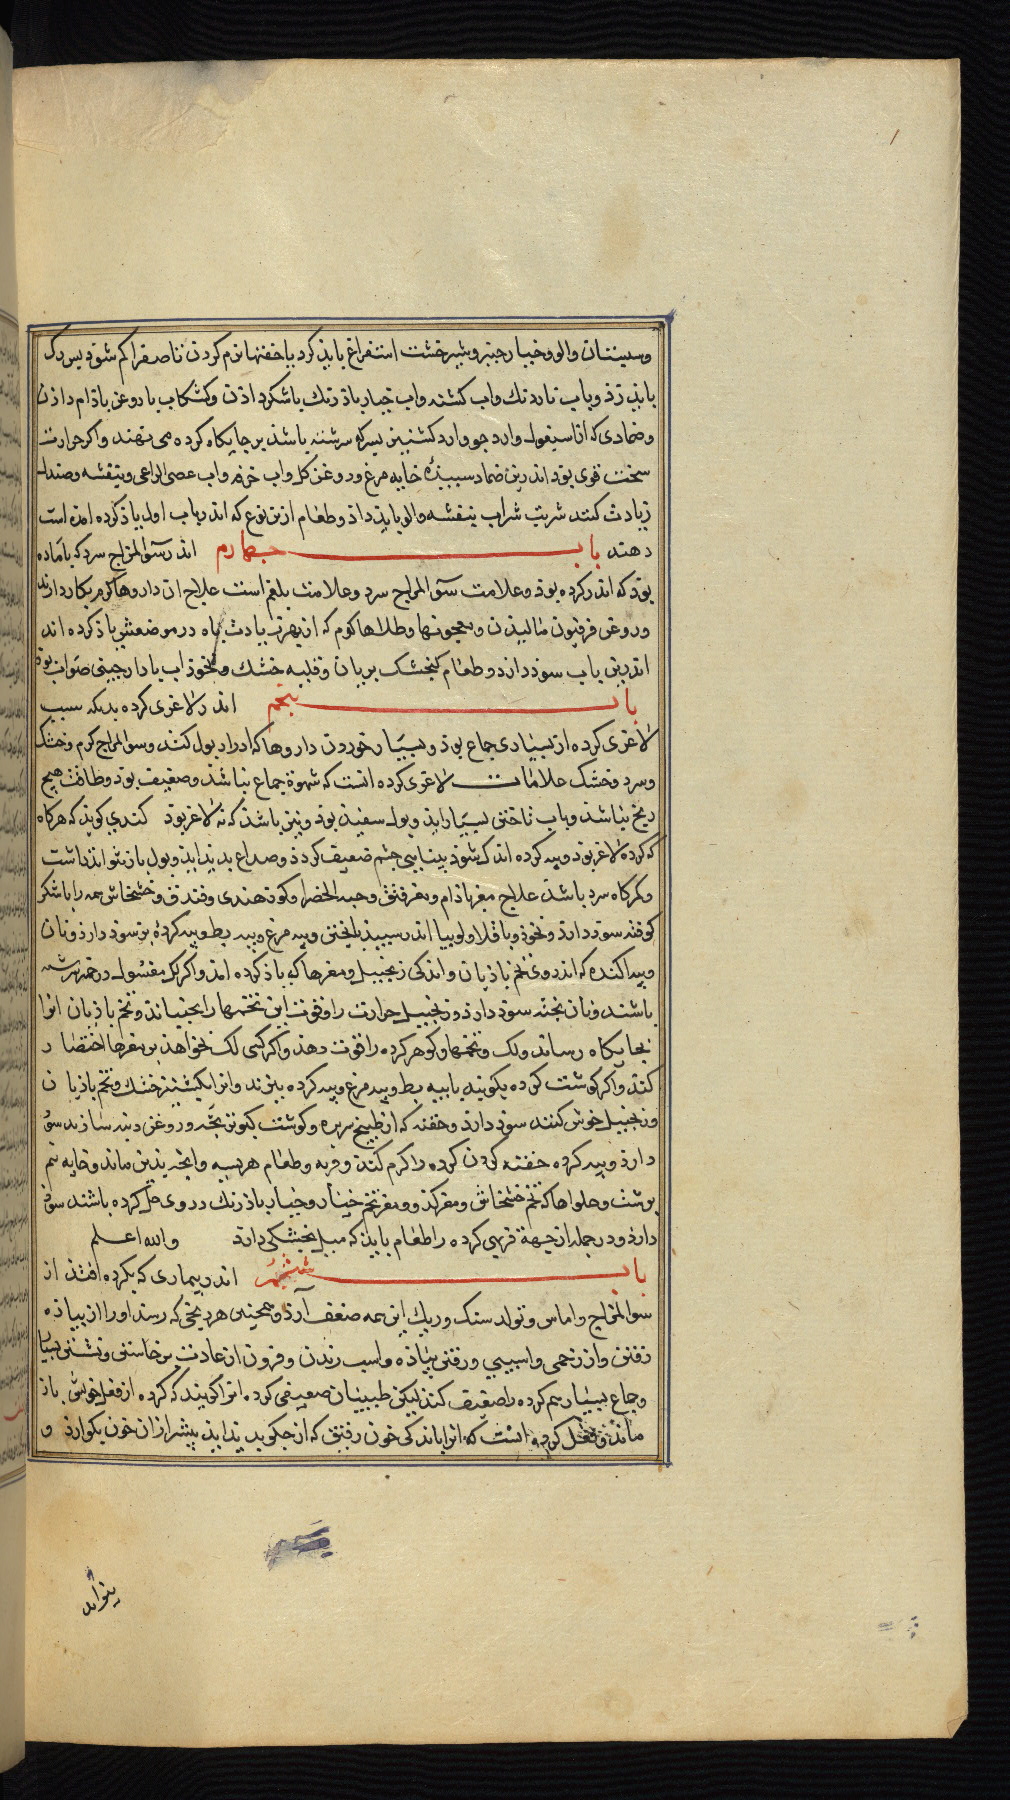 وسپستان والو وخیار چنبر وشیرخشت استفراغ باید کرد یا حقنها نرم کردن تا صفرا کم شوذ پس رک
بایذ زذ وباب نار ترنك واب کشنه واب خیار باذرنك باشکر داذن وکشکاب با روغن باذام داذن
وضمادی که از اسپغول وارد جو وارد کشنیز بسرکه سرشته باشذ بر جایکاه کرده می نهند واکر حرارت
سخت قوی بوذ اندرین ضماد سبیذۀ خایه مرغ وروغن کل واب خرفه واب عصی الراعی وبنفشه وصندل
زیادت کنند شربت شراب بنفشه والو بایذ داذ وطعام ازین نوع که اندر باب اول یاذ کرده امده است
دهند باب جهارم اندر سوالمزاج سرد که باماده
بوذ که اندر کرده بوذ وعلامت سوالمزاج سرد وعلامت بلغم است علاج ان داروها کرم بکار دارند
وروغن فرفیون مالیذن ومعجونها وطلاها کرم که از بهر زیادت باه در موضعش یاذ کرده اند
اندرین باب سوذ دارد وطعام کنجشک بریان وقلیه خشك ونخوذاب با دارجینی صواب بوذ
باب پنجم اندر لاغری کرده بدیکه سبب
لاغری کرده از بسیاری جماع بوذ وبسیار خوردن داروها که ادرار بول کنند وسوالمزاج کرم وخشک
وسرد وخشک علامات لاغری کرده انست که شهوة جماع نباشذ وضعیف بوذ وطاقت هیچ
رنج نباشذ وباب تاختن بسیار ایذ وبول سفیذ بوذ وبتن باشذ که نه لاغر بوذ کندی کویذ که هرکاه
که کرده لاغر بوذ وپیه کرده اندک شوذ بینایی جشم ضعیف کردذ وصداع بدیذ ایذ وبول باز نتواند داشت
وکر کاه سرد باشذ علاج مغز باذام ومغز فستق وحبه الخضرا وکوز هندی وفندق وخشخاش همه را باشکر
کوفته سوذ دارذ ونخوذ وباقلا ولوبیا اندر سبیذبا بختن وپیه مرغ وپیه بط وپیه کرده بز سوذ دارذ ونان
وپیه اکنده که اندر وی تخم باذیان واندکی زنجبیل ومغزها که یاذ کرده امذ واکر لک مغسول در خمیر سرشته
باشند ونان بخته سوذ دارذ وزنجبیل حرارت را وقوت این تختمها را بجنباند وتخم باذیان انرا
بجایکاه رساند ولک وتخمها وکوهر کرده را قوت دهذ واکر کسی لک نخواهذ بر مغزها اختصار
کند واکر کوشت کرده بکوینه با پیه بط وپیه مرغ وپیه کرده ببزند وانرا بکشنیز خشك وتخم باذیان
وزنجبیل خوش کنند سوذ دارذ وحقنه که از طبیخ سر بره وکوشت کبوتر بچه وروغن دنبه سازند سوذ
دارذ وپیه کرده حقنه کردن کرده را کرم کند وفربه وطعام هریسه وانجه بدین ماند وخایه نیم
برشت وحلواها که تخم خشخاش ومغز کدو ومغز تخم خیار وخیار باذرنك در وی حل کرده باشند سوذ
دارذ ودر جمله از جهة فربهی کرده را طعام بایذ که میل بخشکی دارد والله اعلم
باب ششم اندر بیماری که بکرده افتذ از
سوالمزاج واماس وتولد سنک وریك این همه ضعف آرذ وهمجنین هر رنجی که رسد اورا از بیاذه
رفتن واز زخمی واسیبی ورفتن بیاذه واسب رندن وفزون از عادت برخاستن ونشستن بسیار
وجماع بسیار هم کرده را ضعیف کند لیکن طبیبان ضعیفی کرده انرا کویند که کرده از فعل خویش باز
ماند وفعل کرده انست که انرا باندکی خون رقیق که از جکر بدیذ ایذ بیشتر از ان خون بکوارذ و
بتواند